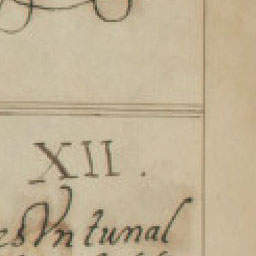 XII.
es Vn tunal